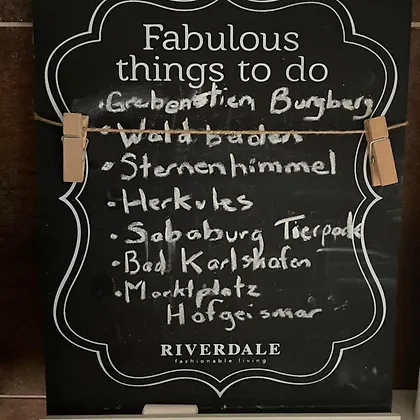 Fabulous
things to do
• Grebenstien Burgberg
• Waldbaden
• Sternenhimmel
• Herkules
• Sababurg Tierpark
• Bad Karlshafen
• Marktplatz
Hofgeismar
RIVERDALE
fashionable living